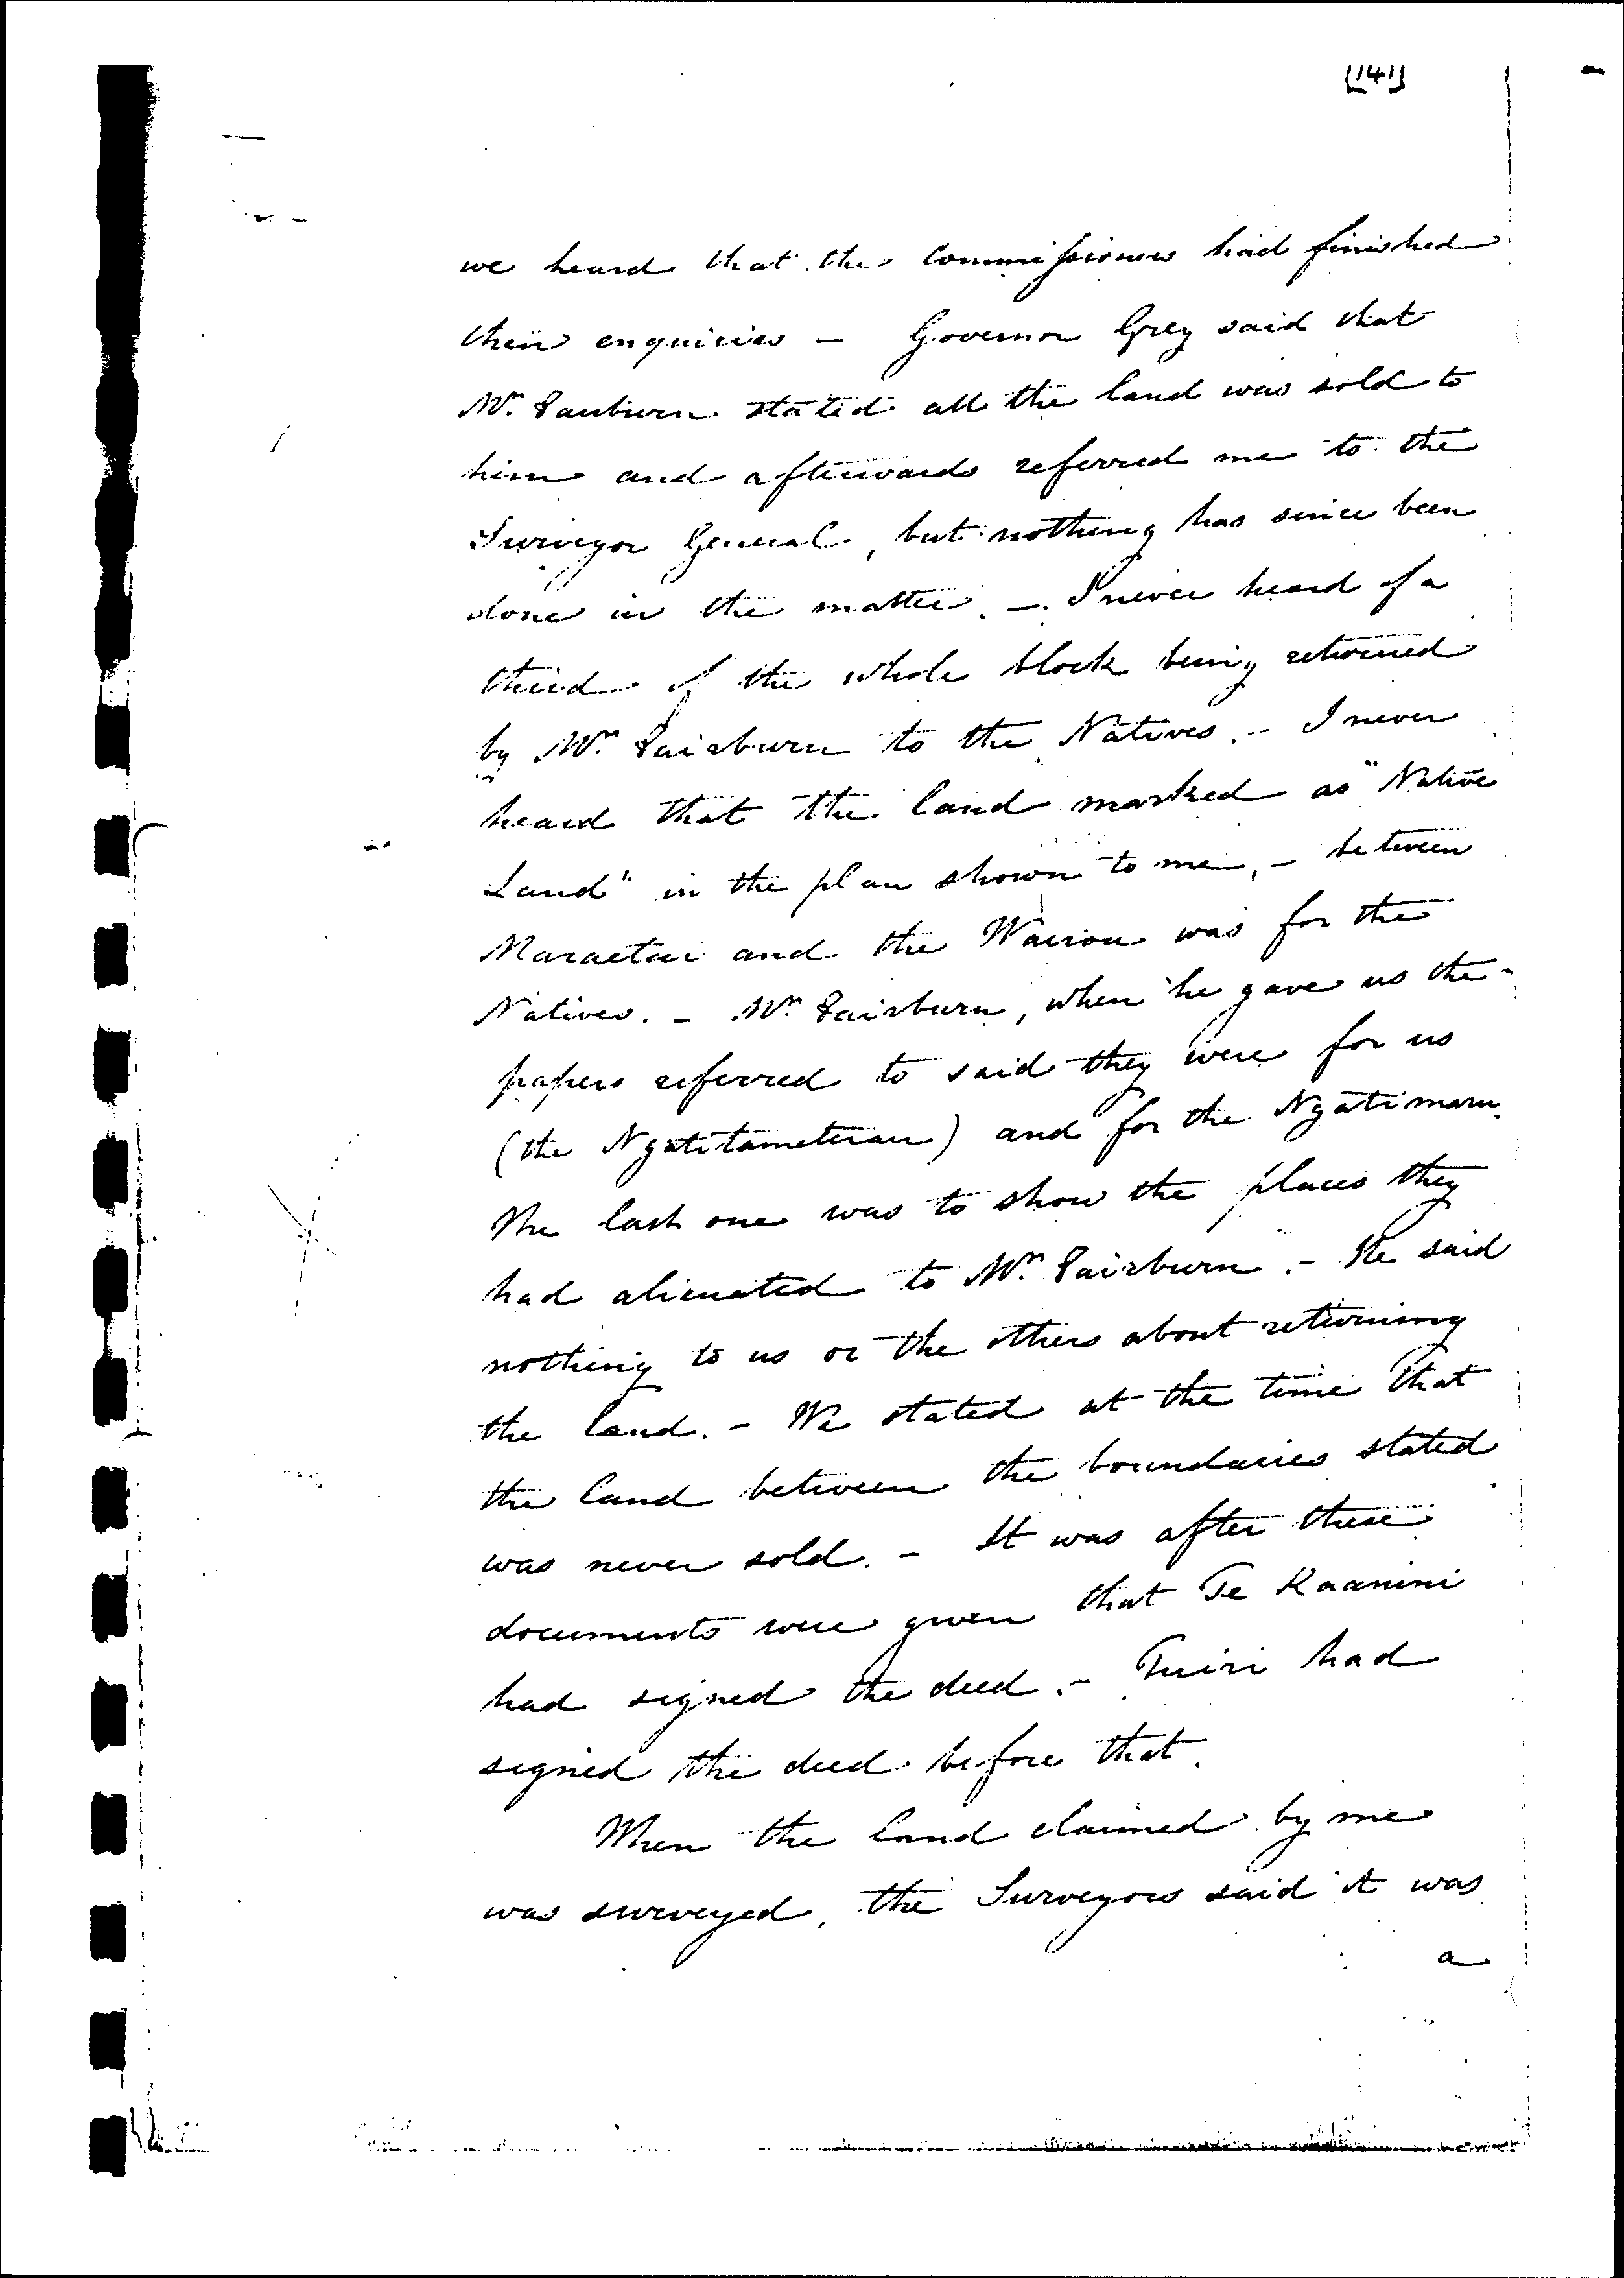 [141]
we heard that the Commissioners had finished
their enquiries - Governor Grey said that
Mr. Fairburn stated all the land was sold to
him and afterwards referred me to the
Surveyor General, but nothing has since been
done in the matter. - I never heard of a
third of the whole block being returned
by Mr. Fairburn to the Natives. - I never
heard that the land marked as "Native
Land" in the plan shown to me, - between
Maraetai and the Wairoa was for the
Natives. - Mr. Fairburn, when he gave us the
papers referred to said they were for us
(the Ngatitameterau) and for the Ngatimaru.
The last one was to show the places they
had alienated to Mr. Fairburn. - He said
nothing to us or the others about returning
the land. - We stated at the time that
the land between the boundaries stated
was never sold. - It was after these
documents were given that Te Kaanini
had signed the deed. - Tuiri had
signed the deed before that.
When the land claimed by me
was surveyed, the Surveyors said it was
a